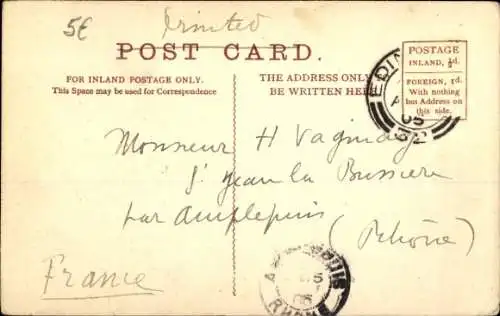 5€
Printed
POST CARD.
FOR INLAND POSTAGE ONLY.
This Space may be used for Correspondence
THE ADDRESS ONLY
BE WRITTEN HERE
POSTAGE
INLAND, ½d.
FOREIGN, 1d.
With nothing
but Address on
this side.
EDIN
05
Monsieur H
St Jean la Bussiere
par Amplepuis
(Rhône)
France
RHONE